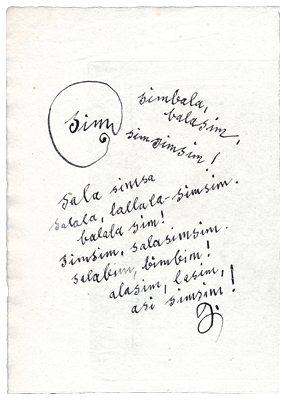 simu
simbala,
balasim,
simsimsim!
sala simsa
salala, lallala-simsim.
balala sim!
simsim, salasimsim.
salabim, bimbim!
alasim, lasim,
asi simsim!